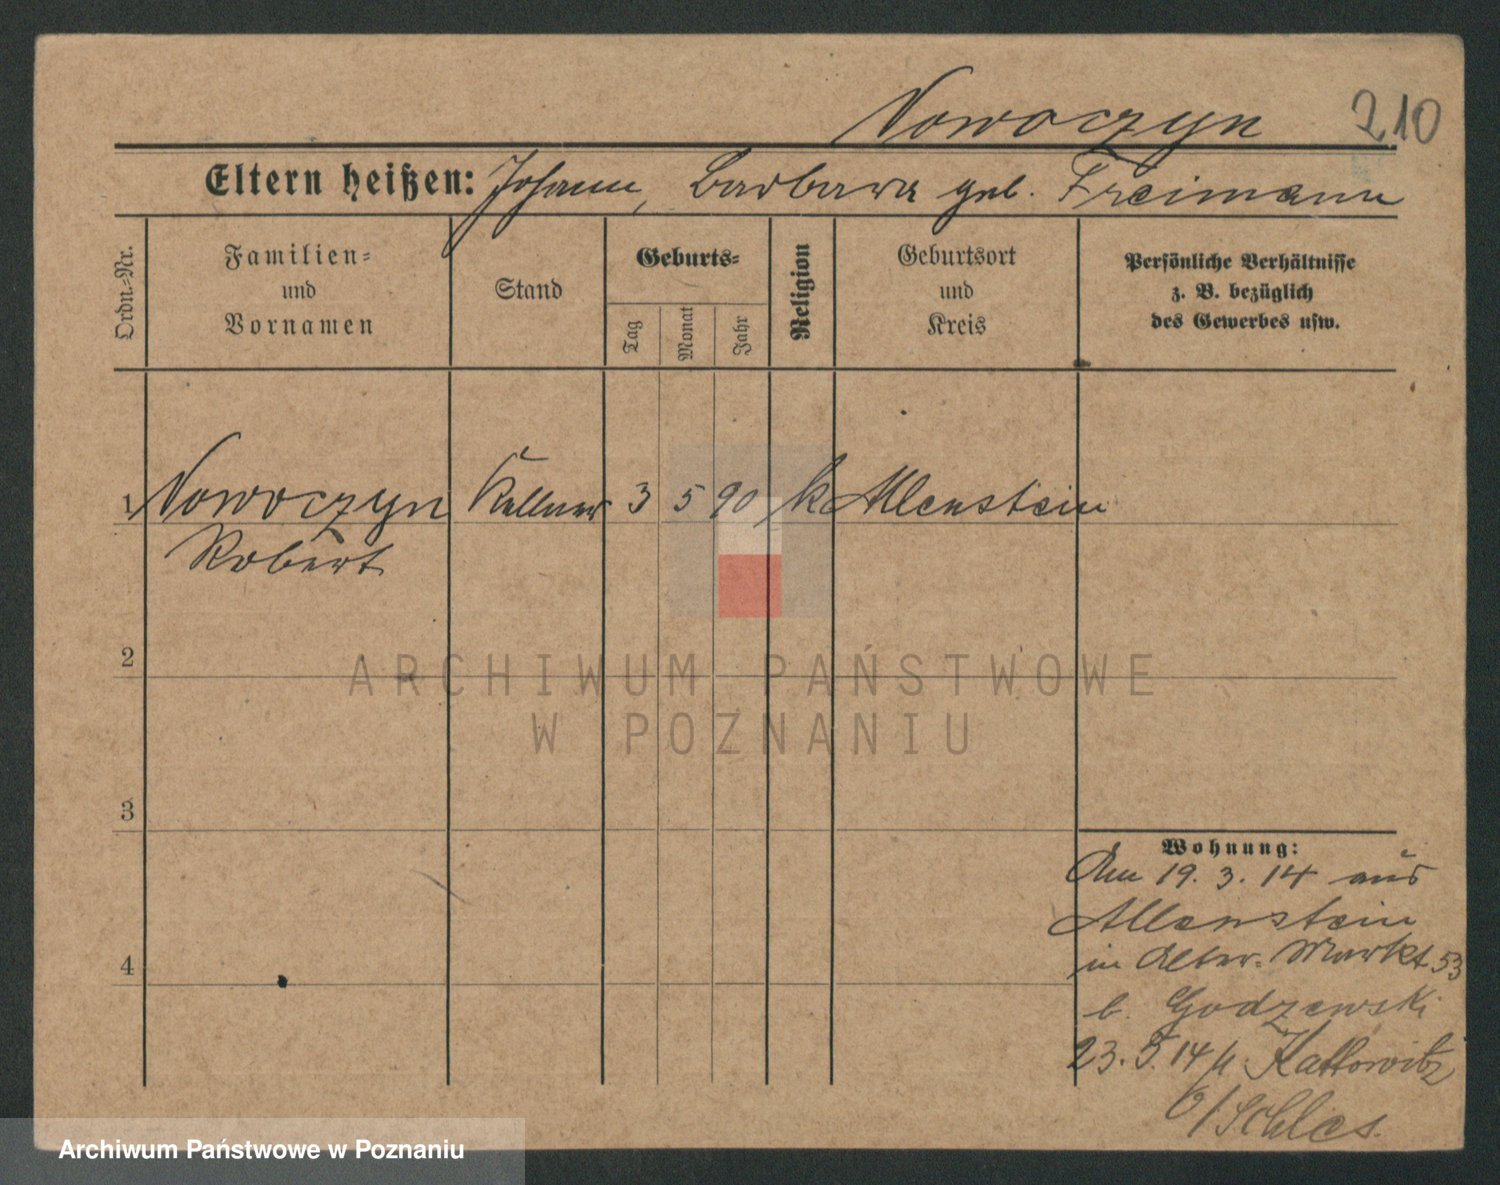 Nowoczyn 210
Eltern heißen: Johann, Barbara geb. Freimann
Ordn.-Nr.
Familien-
und
Vornamen
Stand
Geburts-
Tag
Monat
Jahr
Religion
Geburtsort
und
Kreis
Persönliche Verhältnisse
z. B. bezüglich
des Gewerbes usw.
1 Nowoczyn Kellner 3 5 90 k Allenstein
Robert
2
3
4
Wohnung:
Am 19.3.14 aus
Allenstein
in Alter-Markt 53
b. Godzewski
23.5.14 n. Kattowitz
O/Schles.
ARCHIWUM PAŃSTWOWE
W POZNANIU
Archiwum Państwowe w Poznaniu